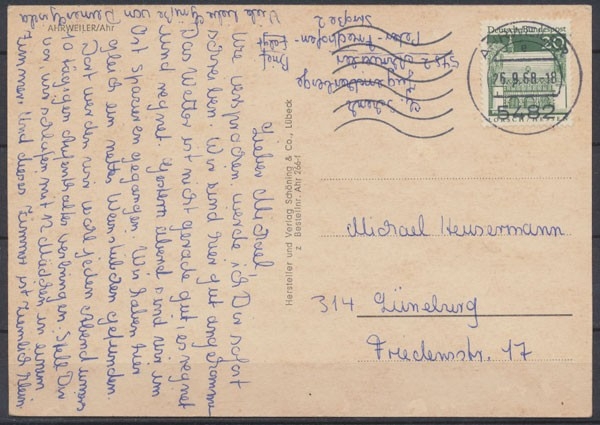 AHRWEILER/Ahr
Lieber Michael!
Wie versprochen, werde ich Dir sofort
schreiben. Wir sind hier gut angekommen
Das Wetter ist nicht gerade gut, es regnet
und regnet. Gestern abend sind wir im
Ort spazieren gegangen. Wir haben hier
gleich ein nettes Weinstübchen gefunden.
Dort werden wir wohl jeden Abend unseres
10 tägigen Aufenthaltes verbringen. Stell Dir
vor wir schlafen mit 12 Mädchen in einem
Zimmer. Und dieses Zimmer ist ziemlich klein
Viele liebe Grüße von
Brief
folgt
Jugendherberge
5782 Ahrweiler
Peter-Friedhofen-
Straße 2
Hersteller und Verlag Schöning & Co., Lübeck
z Bestellnr. Ahr 266-f
Deutsche Bundespost
20
26.9.68-18
5782
Michael Heusermann
314 Lüneburg
Friedenstr. 17